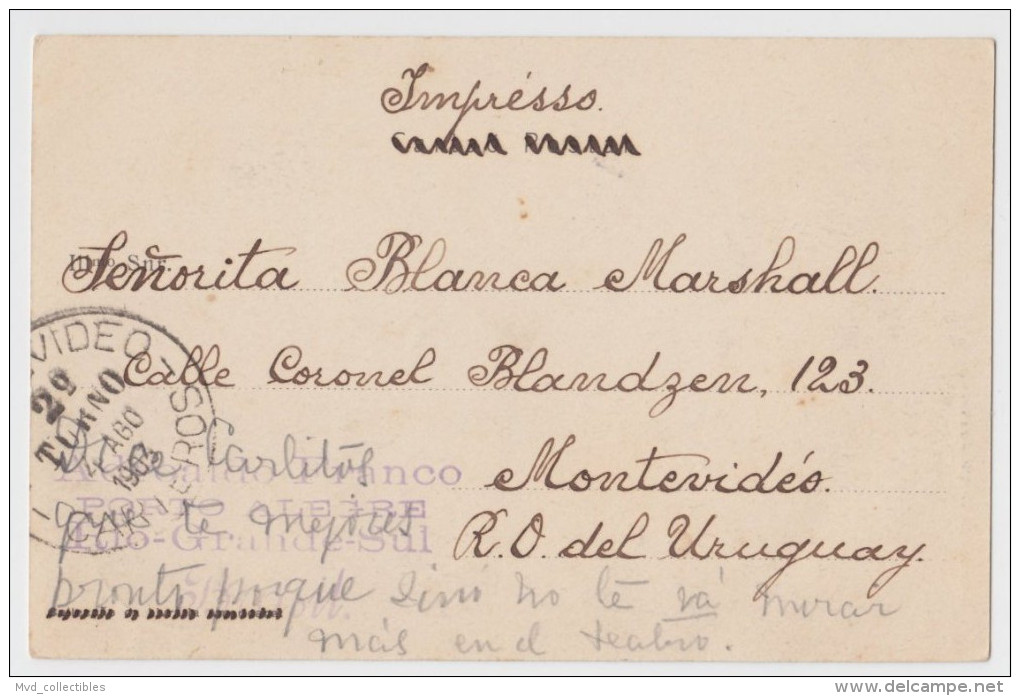 Imprésso.
Señorita Blanca Marshall.
Calle Coronel Blandzen, 123.
Montevidéo.
R.O. del Uruguay.
VIDEO
29
TURNO
AGO
1903
CARTEROS
Franco
PORTO ALEGRE
Rio-Grande-Sul
Dice Carlitos
que te mejores
pronto porque sinó no te vá mirar
más en el teatro.
Mvd_collectibles
www.delcampe.net